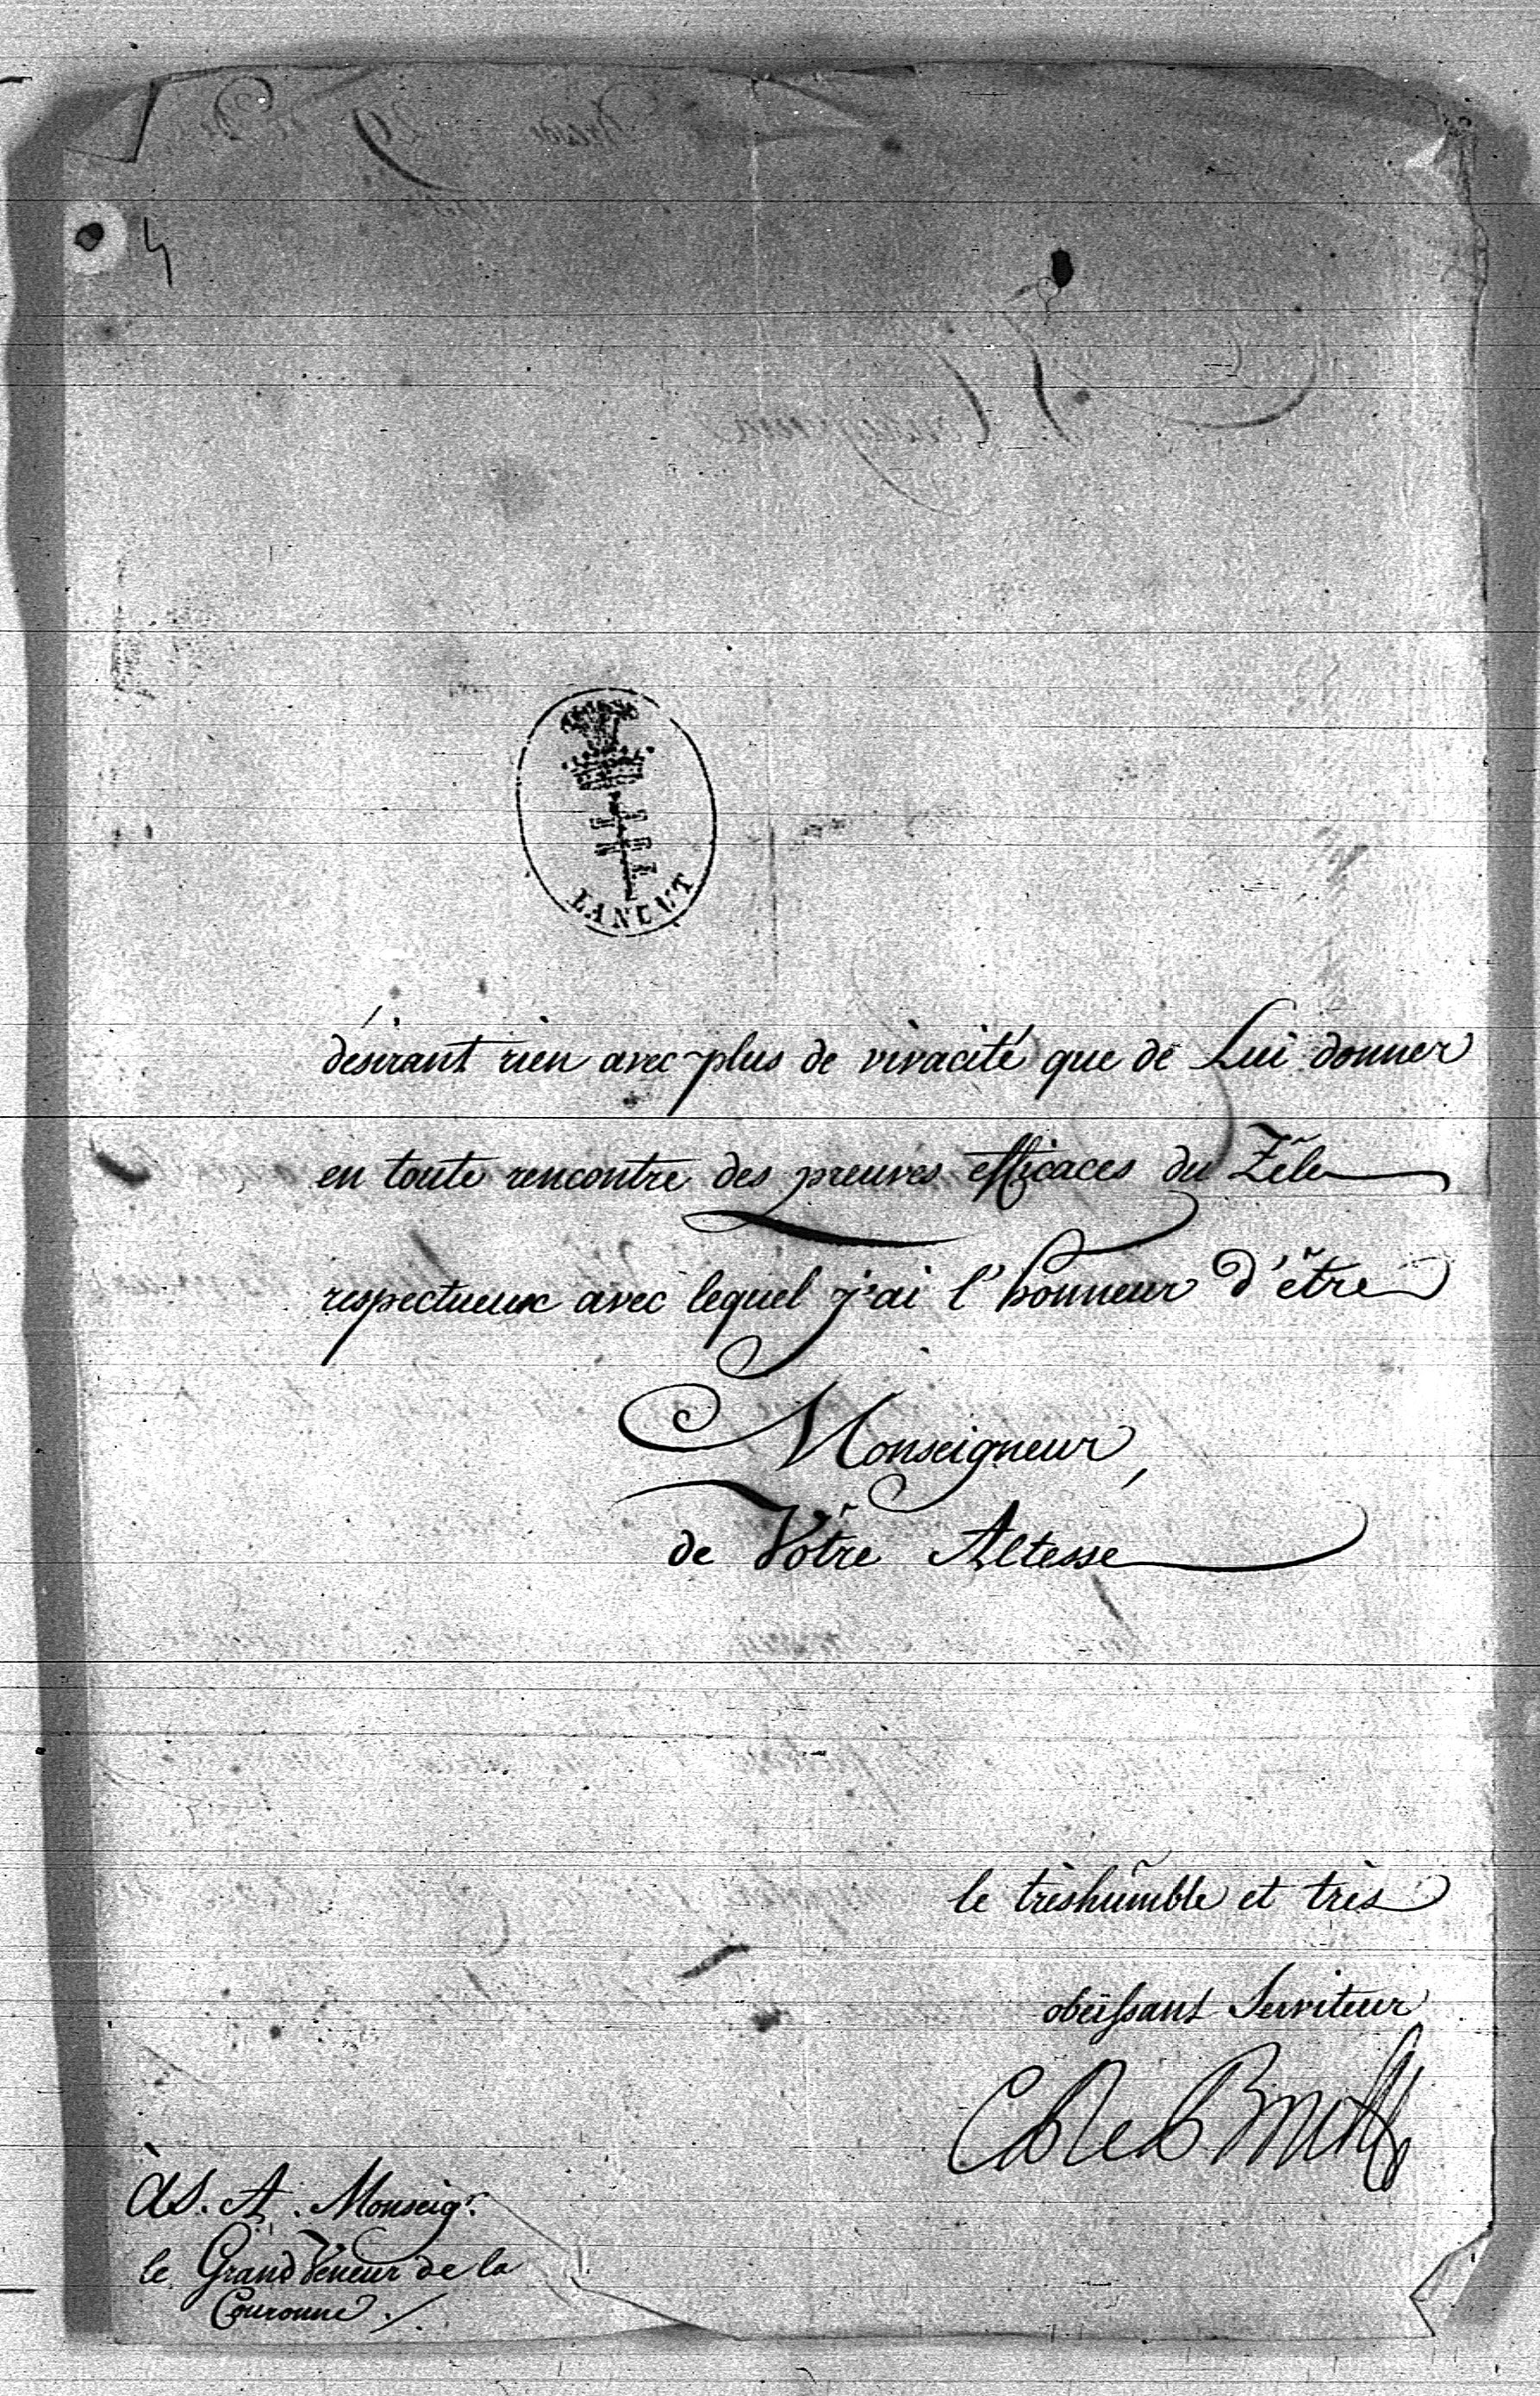 4
LANCUT
désirant rien avec plus de vivacité que de Lui donner
en toute rencontre des preuves efficaces du Zêle
respectueux avec lequel j'ai l'honneur d'être
Monseigneur,
de Vôtre Altesse
le trèshumble et très
obéissant Serviteur
à S. A. Monseigr.
le Grand Veneur de la
Couronne ./.